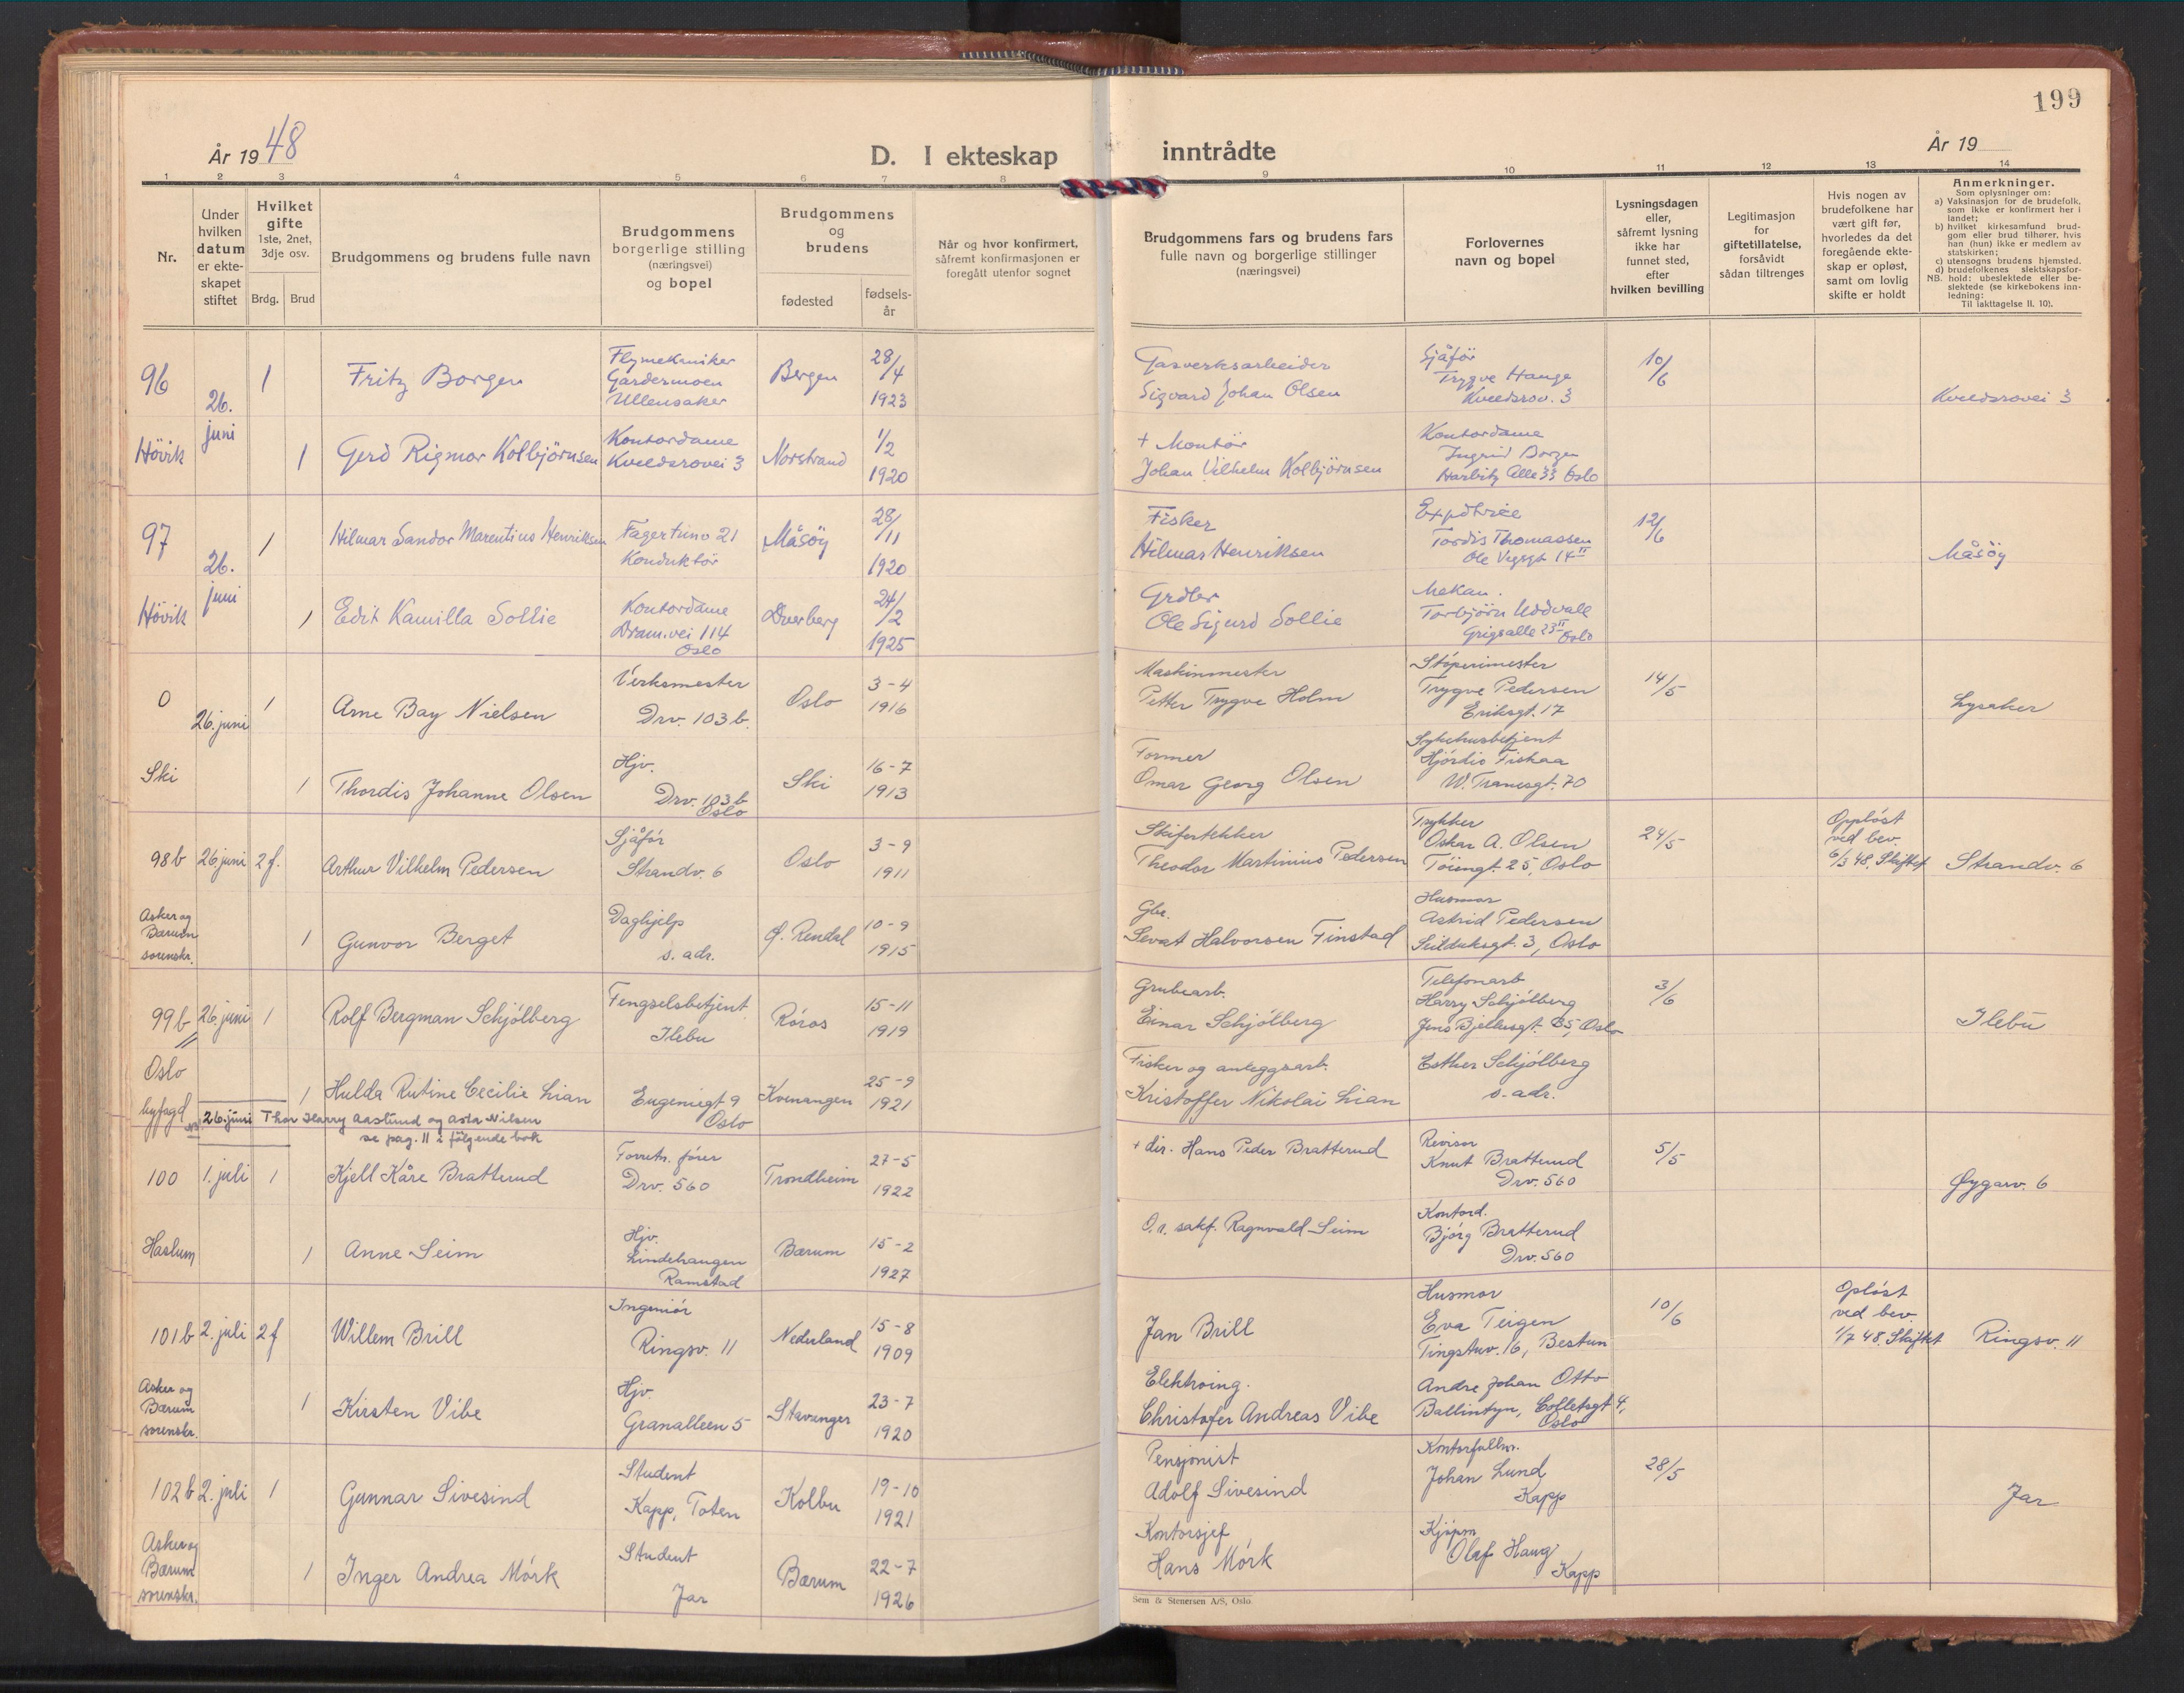 199
År 1948
D. I ekteskap inntrådte
År 19
1 2 3 4 5 6 7 8 9 10 11 12 13 14
Nr.
Under hvilken datum er ekte-skapet stiftet
Hvilket gifte
1ste, 2net, 3dje osv.
Brdg. Brud
Brudgommens og brudens fulle navn
Brudgommens borgerlige stilling (næringsvei) og bopel
Brudgommens og brudens
fødested
fødsels-år
Når og hvor konfirmert, såfremt konfirmasjonen er foregått utenfor sognet
Brudgommens fars og brudens fars fulle navn og borgerlige stillinger (næringsvei)
Forlovernes navn og bopel
Lysningsdagen eller, såfremt lysning ikke har funnet sted, efter hvilken bevilling
Legitimasjon for giftetillatelse, forsåvidt sådan tiltrenges
Hvis nogen av brudefolkene har vært gift før, hvorledes da det foregående ekte-skap er opløst, samt om lovlig skifte er holdt
Anmerkninger.
Som oplysninger om:
a) Vaksinasjon for de brudefolk, som ikke er konfirmert her i landet;
b) hvilket kirkesamfund brud-gom eller brud tilhører, hvis han (hun) ikke er medlem av statskirken;
c) utensogns brudens hjemsted.
d) brudefolkenes slektskapsfor-hold: ubeslektede eller be-slektede (se kirkebokens inn-ledning:
NB.
Til iakttagelse II. 10).
96 26. juni 1 Fritz Borgen Flymekaniker Gardermoen Ullensaker Bergen 28/4 1923
Gasverksarbeider Sigvard Johan Olsen Sjåfør Trygve Hauge Kveldsrov. 3 10/6 Kveldsrovei 3
Hövik 1 Gerd Rigmor Kolbjörnsen Kontordame Kveldsrovei 3 Norstrand 1/2 1920
+ Montör Johan Vilhelm Kolbjörnsen Kontordame Ingrid Borgen Harbitz Alle 33 Oslo
97 26. juni 1 Hilmar Sandor Marentius Henriksen Fagertunv 21 Konduktör Måsöy 28/11 1920
Fisker Hilmar Henriksen Expdtrice Tordis Thomassen Ole Vigsgt 14 II 12/6 Måsöy
Hövik 1 Edit Kamilla Sollie Kontordame Dram.vei 114 Oslo Dverberg 24/2 1925
Grdbr Ole Sigurd Sollie Mekan. Torbjörn Uddvall Grigsalle 23 II Oslo
0 26. juni 1 Arne Bay Nielsen Verksmester Drv. 103 b. Oslo 3-4 1916
Maskinmester Petter Trygve Holm Støperimester Trygve Pedersen Eriksgt. 17 14/5 Lysaker
Ski 1 Thordis Johanne Olsen Hjv. Drv. 103 b Oslo Ski 16-7 1913
Former Omar Georg Olsen Sykehusbetjent Hjórdis Fiskaa W. Tranesgt. 70
98 b 26 juni 2 f. Arthur Vilhelm Pedersen Sjåfór Strandv. 6 Oslo 3-9 1911
Skifertekker Theodor Martinius Pedersen Trykker Oskar A. Olsen Töiengt. 25, Oslo 24/5 Oppløst ved bev. 6/3 48. Skiftet Strandv. 6
Asker og Bærum sorenskr. 1 Gunvor Berget Daghjelp s. adr. Ø. Rendal 10-9 1915
Gbr. Sevat Halvorsen Finstad Husmor Astrid Pedersen Seilduksgt. 3, Oslo
99 b 26. juni 1 Rolf Bergman Schjólberg Fengselsbetjent Ilebu Róros 15-11 1919
Grubearb. Einar Schjólberg Telefonarb Harry Schjólberg Jens Bjelkesgt. 65, Oslo 3/6 Ilebu
Oslo byfogd 1 Hulda Rutine Cecilie Lian Eugeniegt 9 Oslo Kvenangen 25-9 1921
Fisker og anleggsarb. Kristoffer Nikolai Lian Esther Schjólberg s. adr.
26. juni Thor Harry Aaslund og Asta Nilsen
se pag. 11 i følgende bok
100 1. juli 1 Kjell Kåre Bratterud Forretn. fører Drv. 560 Trondheim 27-5 1922
+ dir. Hans Peder Bratterud Revisor Knut Bratterud Drv. 560 5/5 Øygarv. 6
Haslum 1 Anne Seim Hjv. Lindehaugen Ramstad Bærum 15-2 1927
O.r. sakf. Ragnvald Seim Kontord. Bjórg Bratterud Drv. 560
101 b 2. juli 2 f Willem Brill Ingeniór Ringsv. 11 Nederland 15-8 1909
Jan Brill Husmor Eva Teigen Tingstuv. 16, Bestun 10/6 Opløst ved bev. 1/7 48. Skiftet Ringsv. 11
Asker og Bærum sorenskr. 1 Kirsten Vibe Hjv. Granalleen 5 Stavanger 23-7 1920
Elektroing. Christofer Andreas Vibe Andre Johan Otto Ballintyn, Colletsgt 4, Oslo
102 b 2. juli 1 Gunnar Sivesind Student Kapp, Toten Kolbu 19-10 1921
Pensjonist Adolf Sivesind Kontorfullm. Johan Lund Kapp 28/5 Jar
Asker og Bærum sorenskr. 1 Inger Andrea Mórk Student Jar Bærum 22-7 1926
Kontorsjef Hans Mórk Kjøpm Olaf Haug Kapp
Sem & Stenersen A/S, Oslo.